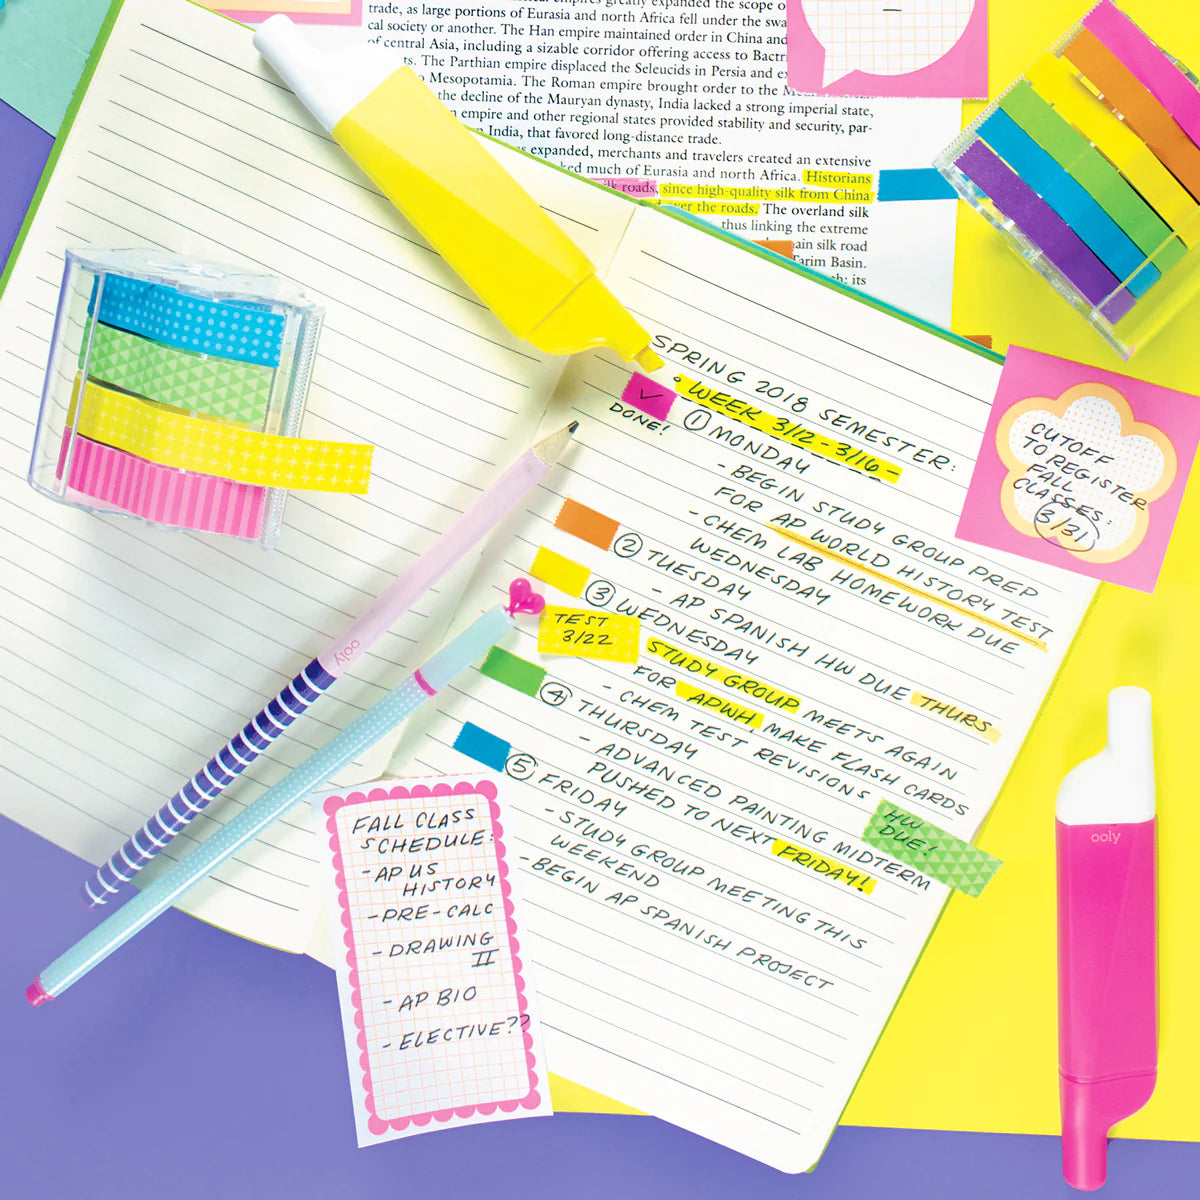 empires greatly expanded the scope o
trade, as large portions of Eurasia and north Africa fell under the swa
cal society or another. The Han empire maintained order in China and
of central Asia, including a sizable corridor offering access to Bactri
ts. The Parthian empire displaced the Seleucids in Persia and ex
Mesopotamia. The Roman empire brought order to the
the decline of the Mauryan dynasty, India lacked a strong imperial state,
n empire and other regional states provided stability and security, par-
n India, that favored long-distance trade.
s expanded, merchants and travelers created an extensive
ked much of Eurasia and north Africa. Historians
ilk roads, since high-quality silk from China
over the roads. The overland silk
thus linking the extreme
ain silk road
Tarim Basin.
its
SPRING 2018 SEMESTER:
• WEEK 3/12 - 3/16 -
✓
DONE!
① MONDAY
- BEGIN STUDY GROUP PREP
FOR AP WORLD HISTORY TEST
- CHEM LAB HOMEWORK DUE
WEDNESDAY
② TUESDAY
- AP SPANISH HW DUE THURS
③ WEDNESDAY
TEST
3/22
STUDY GROUP MEETS AGAIN
FOR APWH, MAKE FLASH CARDS
- CHEM TEST REVISIONS
④ THURSDAY
- ADVANCED PAINTING MIDTERM
PUSHED TO NEXT FRIDAY!
HW
DUE!
⑤ FRIDAY
- STUDY GROUP MEETING THIS
WEEKEND
- BEGIN AP SPANISH PROJECT
CUTOFF
TO REGISTER
FALL
CLASSES:
3/31
FALL CLASS
SCHEDULE:
- AP US
HISTORY
- PRE-CALC
- DRAWING
II
- AP BIO
- ELECTIVE??
ooly
ooly